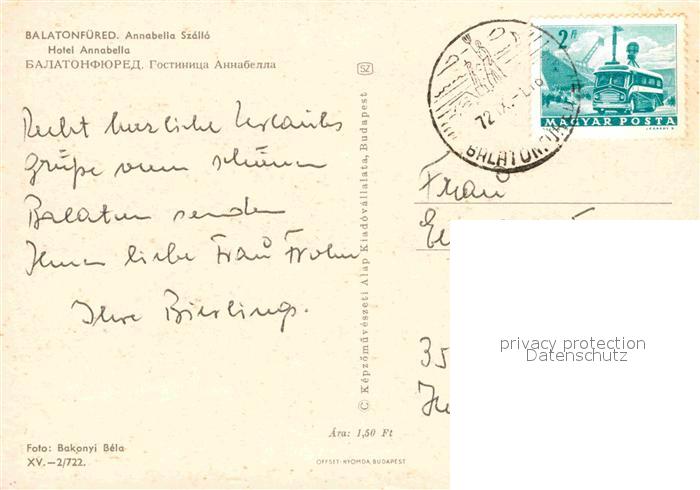 BALATONFÜRED. Annabella Szálló
Hotel Annabella
БАЛАТОНФЮРЕД. Гостиница Аннабелла
Recht herzliche Urlaubs
grüße vom schönen
Balaton senden
Ihnen liebe Frau Frohn
Ihre Bierlings.
Foto: Bakonyi Béla
XV.—2/722.
SZ
© Képzőművészeti Alap Kiadóvállalata, Budapest
Ára: 1,50 Ft
OFFSET-NYOMDA, BUDAPEST
72 IX.-1.-18
BALATONFÜRED
2 Ft
MAGYAR POSTA
Frau
35
privacy protection
Datenschutz